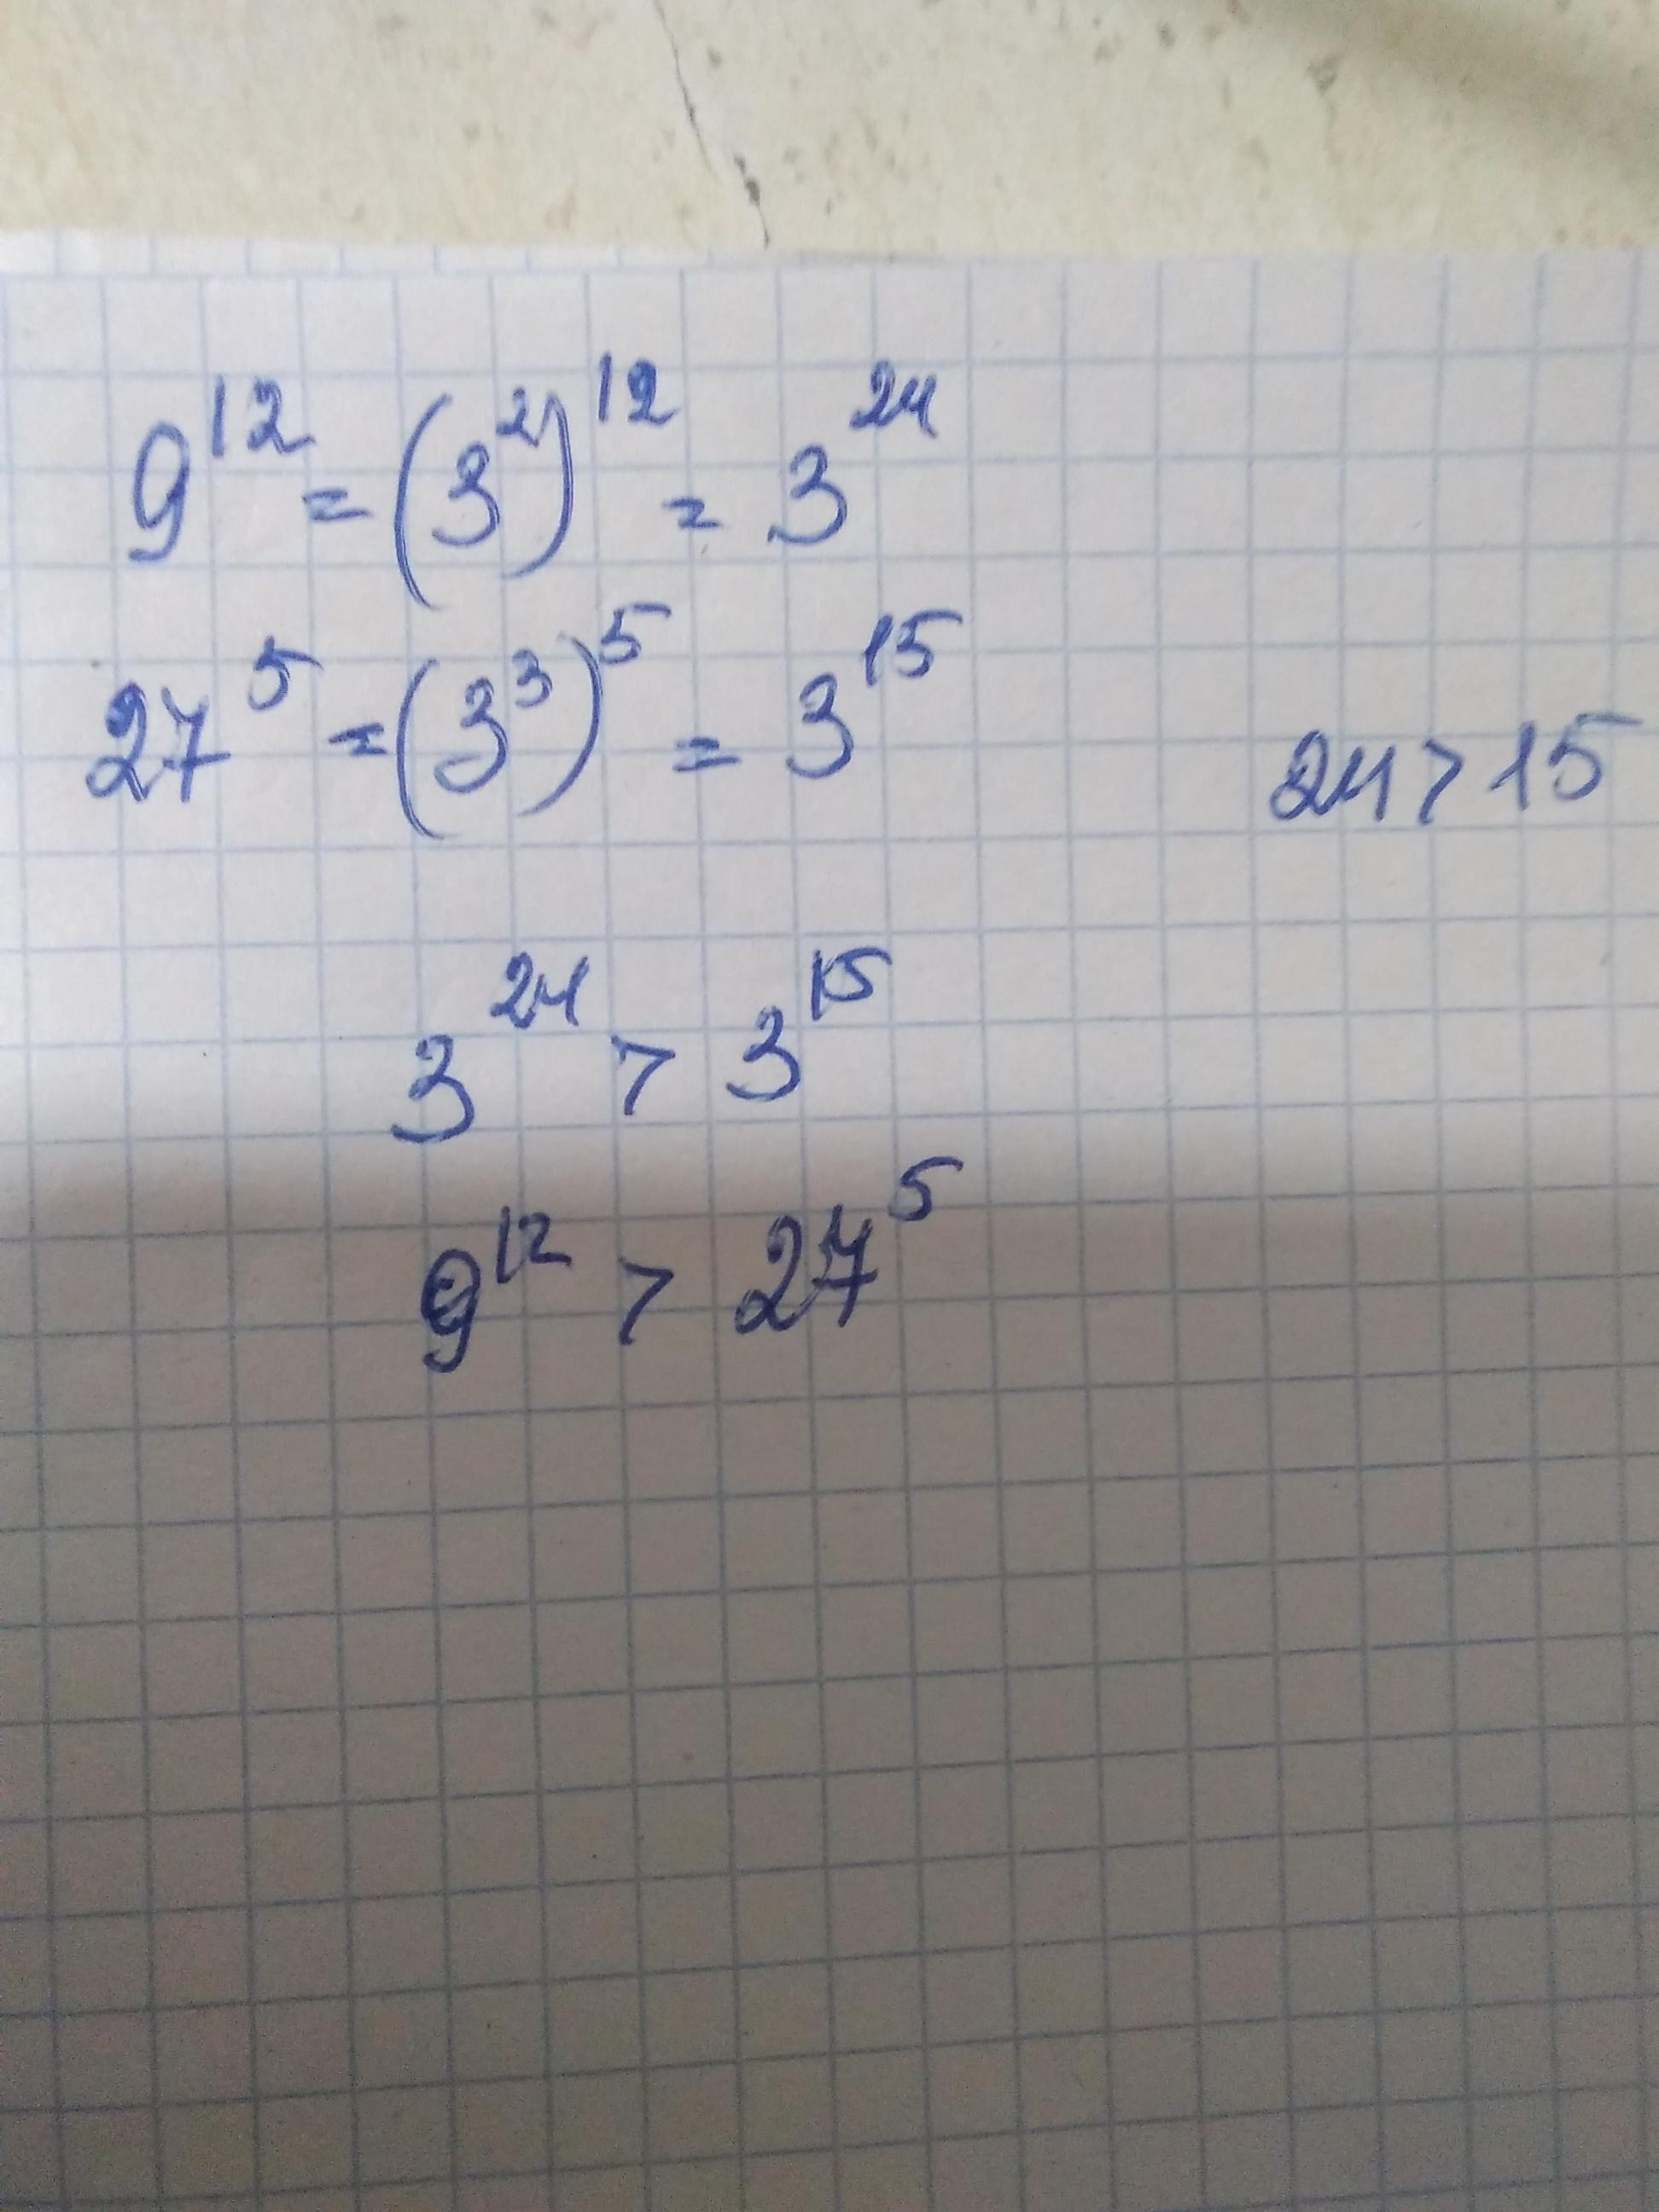 9¹² = (3²)¹² = 3²⁴
27⁵ = (3³)⁵ = 3¹⁵
24 > 15
3²⁴ > 3¹⁵
9¹² > 27⁵